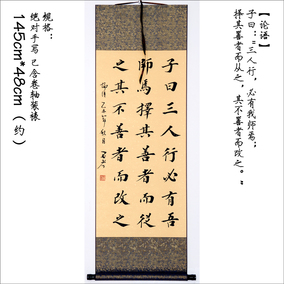 【论语】
子曰："三人行，必有我师焉；
择其善者而从之，其不善者而改之。"
子曰三人行必有吾
師焉擇其善者而從
之其不善者而改之
规格：
绝对手写 已含卷轴装裱
145cm*48cm（约）